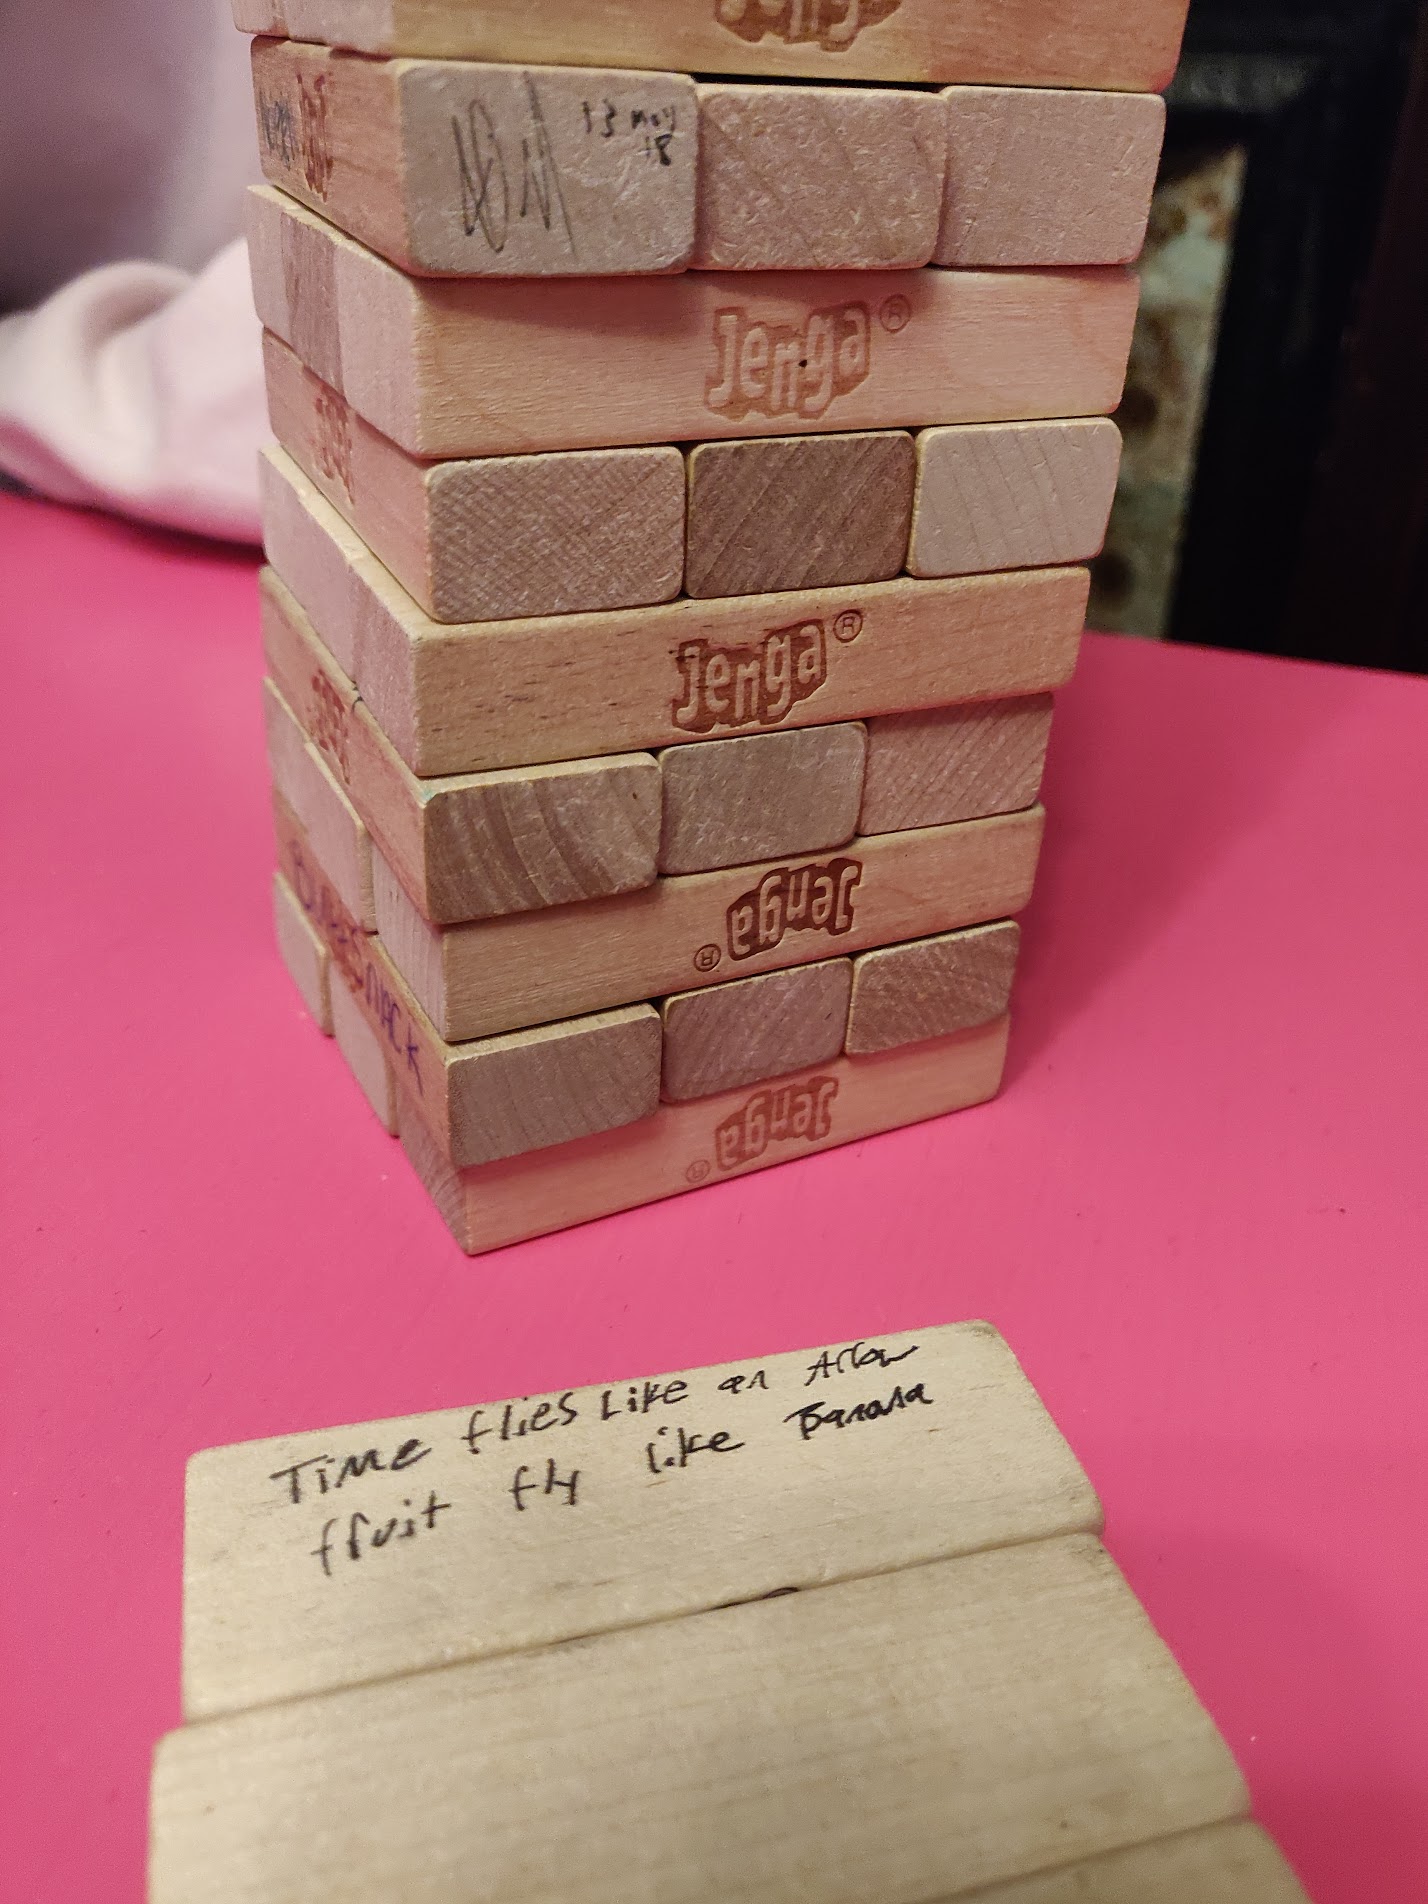 Jenga
13 may
18
Jenga®
Jenga®
Jenga®
Jenga®
Time flies Like an Arrow
fruit fly like Banana